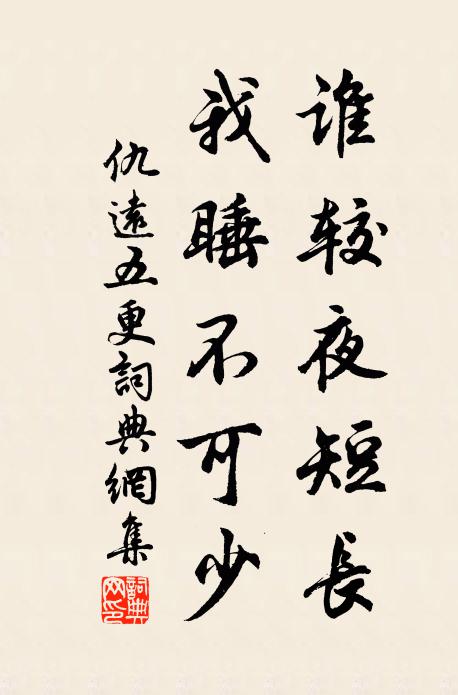 谁较夜短長
我睡不可少
仇遠五更詞典網集
詞典网印